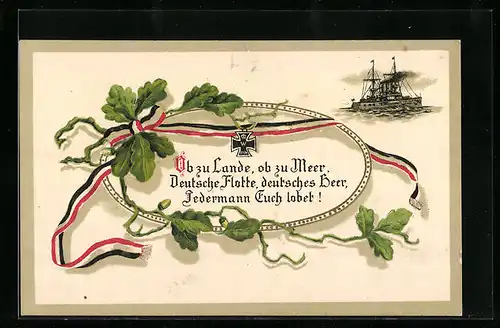 Ob zu Lande, ob zu Meer,
Deutsche Flotte, deutsches Heer,
Jedermann Euch lobet!
W